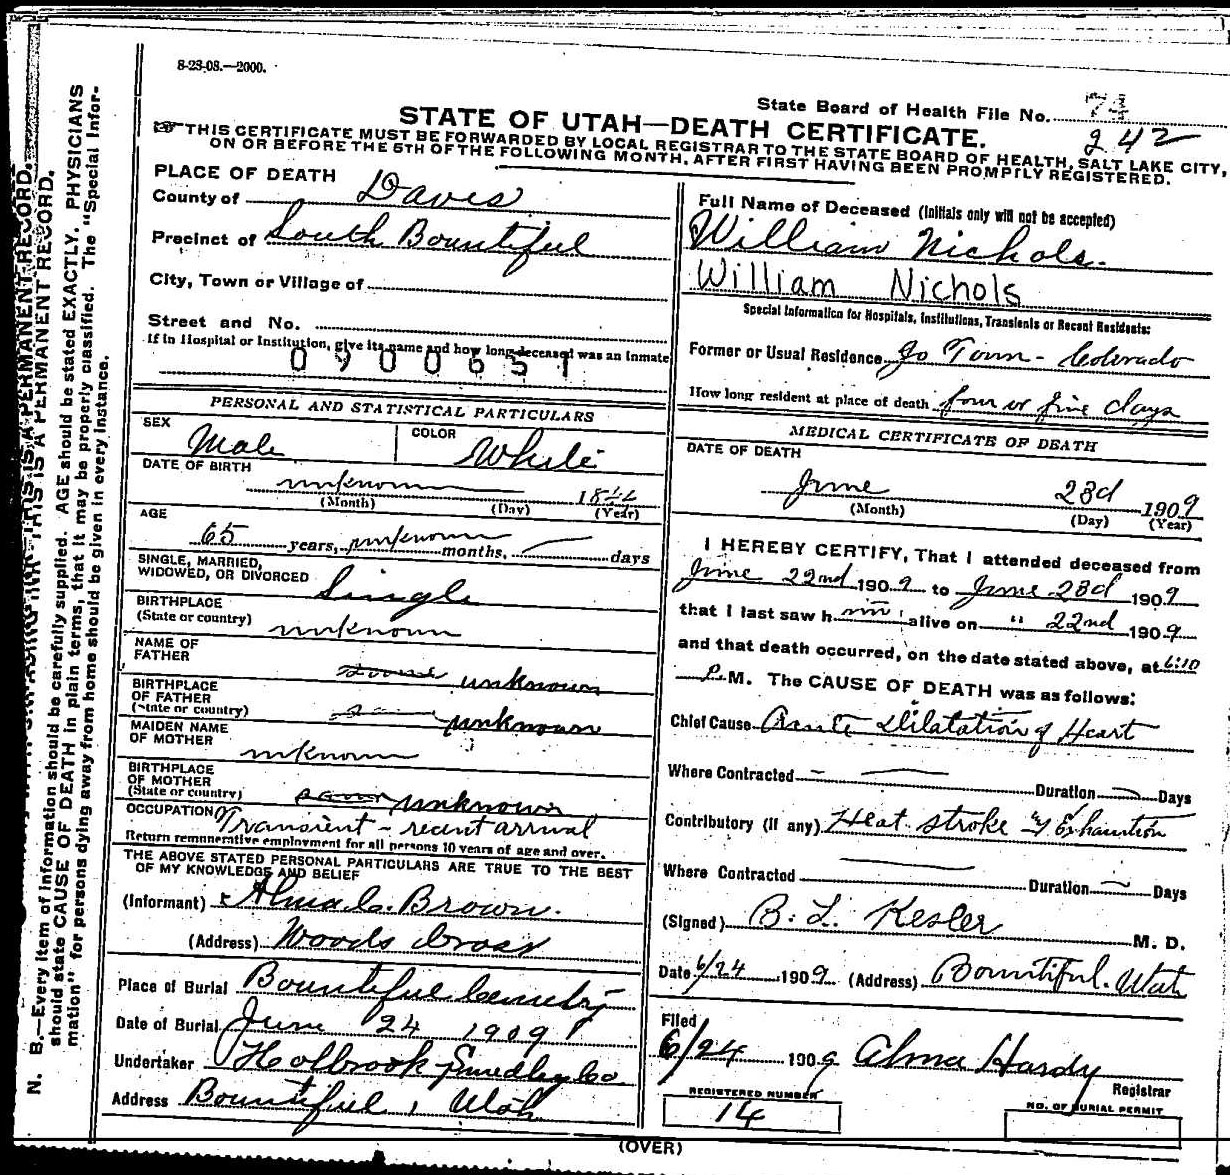 8-23-08.—2000.
State Board of Health File No. 74
242
STATE OF UTAH—DEATH CERTIFICATE.
THIS CERTIFICATE MUST BE FORWARDED BY LOCAL REGISTRAR TO THE STATE BOARD OF HEALTH, SALT LAKE CITY,
ON OR BEFORE THE 5TH OF THE FOLLOWING MONTH, AFTER FIRST HAVING BEEN PROMPTLY REGISTERED.
PLACE OF DEATH
County of Davis
Precinct of South Bountiful
City, Town or Village of
Street and No.
If in Hospital or Institution, give its name and how long deceased was an inmate
0900651
PERSONAL AND STATISTICAL PARTICULARS
SEX Male COLOR White
DATE OF BIRTH
unknown 1844
(Month) (Day) (Year)
AGE
65 years, unknown months, — days
SINGLE, MARRIED,
WIDOWED, OR DIVORCED Single
BIRTHPLACE
(State or country) unknown
NAME OF
FATHER unknown
BIRTHPLACE
OF FATHER
(State or country) unknown
MAIDEN NAME
OF MOTHER unknown
BIRTHPLACE
OF MOTHER
(State or country) unknown
OCCUPATION Transient - recent arrival
Return remunerative employment for all persons 10 years of age and over.
THE ABOVE STATED PERSONAL PARTICULARS ARE TRUE TO THE BEST
OF MY KNOWLEDGE AND BELIEF
(Informant) Alma C. Brown.
(Address) Woods Cross
Place of Burial Bountiful Cemetry
Date of Burial June 24 1909
Undertaker Holbrook Smedley Co
Address Bountiful, Utah
Full Name of Deceased (Initials only will not be accepted)
William Nichols.
William Nichols
Special Information for Hospitals, Institutions, Transients or Recent Residents:
Former or Usual Residence Town - Colorado
How long resident at place of death four or five days
MEDICAL CERTIFICATE OF DEATH
DATE OF DEATH
June 23d 1909
(Month) (Day) (Year)
I HEREBY CERTIFY, That I attended deceased from
June 22nd 1909 to June 23d 1909
that I last saw him alive on " 22nd 1909
and that death occurred, on the date stated above, at 6:10
P. M. The CAUSE OF DEATH was as follows:
Chief Cause Acute Dilatation of Heart
Where Contracted — Duration — Days
Contributory (If any) Heat stroke & Exhaustion
Where Contracted — Duration — Days
(Signed) B. L. Kesler M. D.
Date 6/24 1909 (Address) Bountiful. Utah
Filed
6/24 1909 Alma Hardy
Registrar
REGISTERED NUMBER
14
NO. OF BURIAL PERMIT
(OVER)
N. B.—Every item of information should be carefully supplied. AGE should be stated EXACTLY. PHYSICIANS
should state CAUSE OF DEATH in plain terms, that it may be properly classified. The "Special Infor-
mation" for persons dying away from home should be given in every instance.
THIS IS A PERMANENT RECORD.